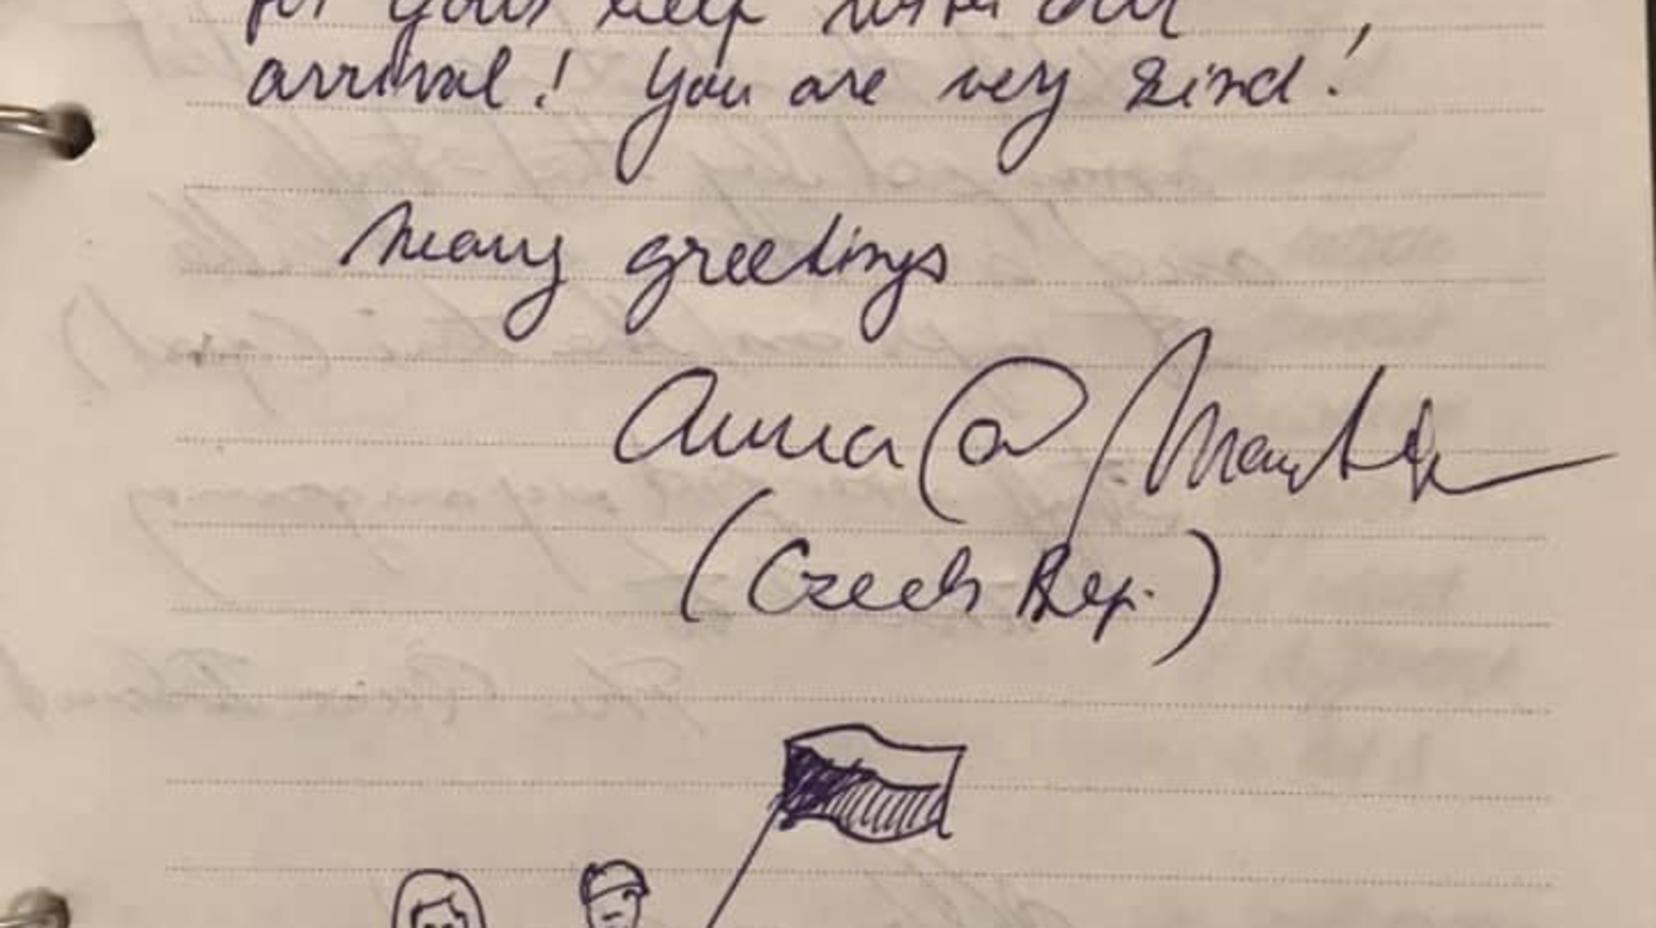 for your help with our
arrival! You are very kind!
Many greetings
Anna @
(Czech Rep.)